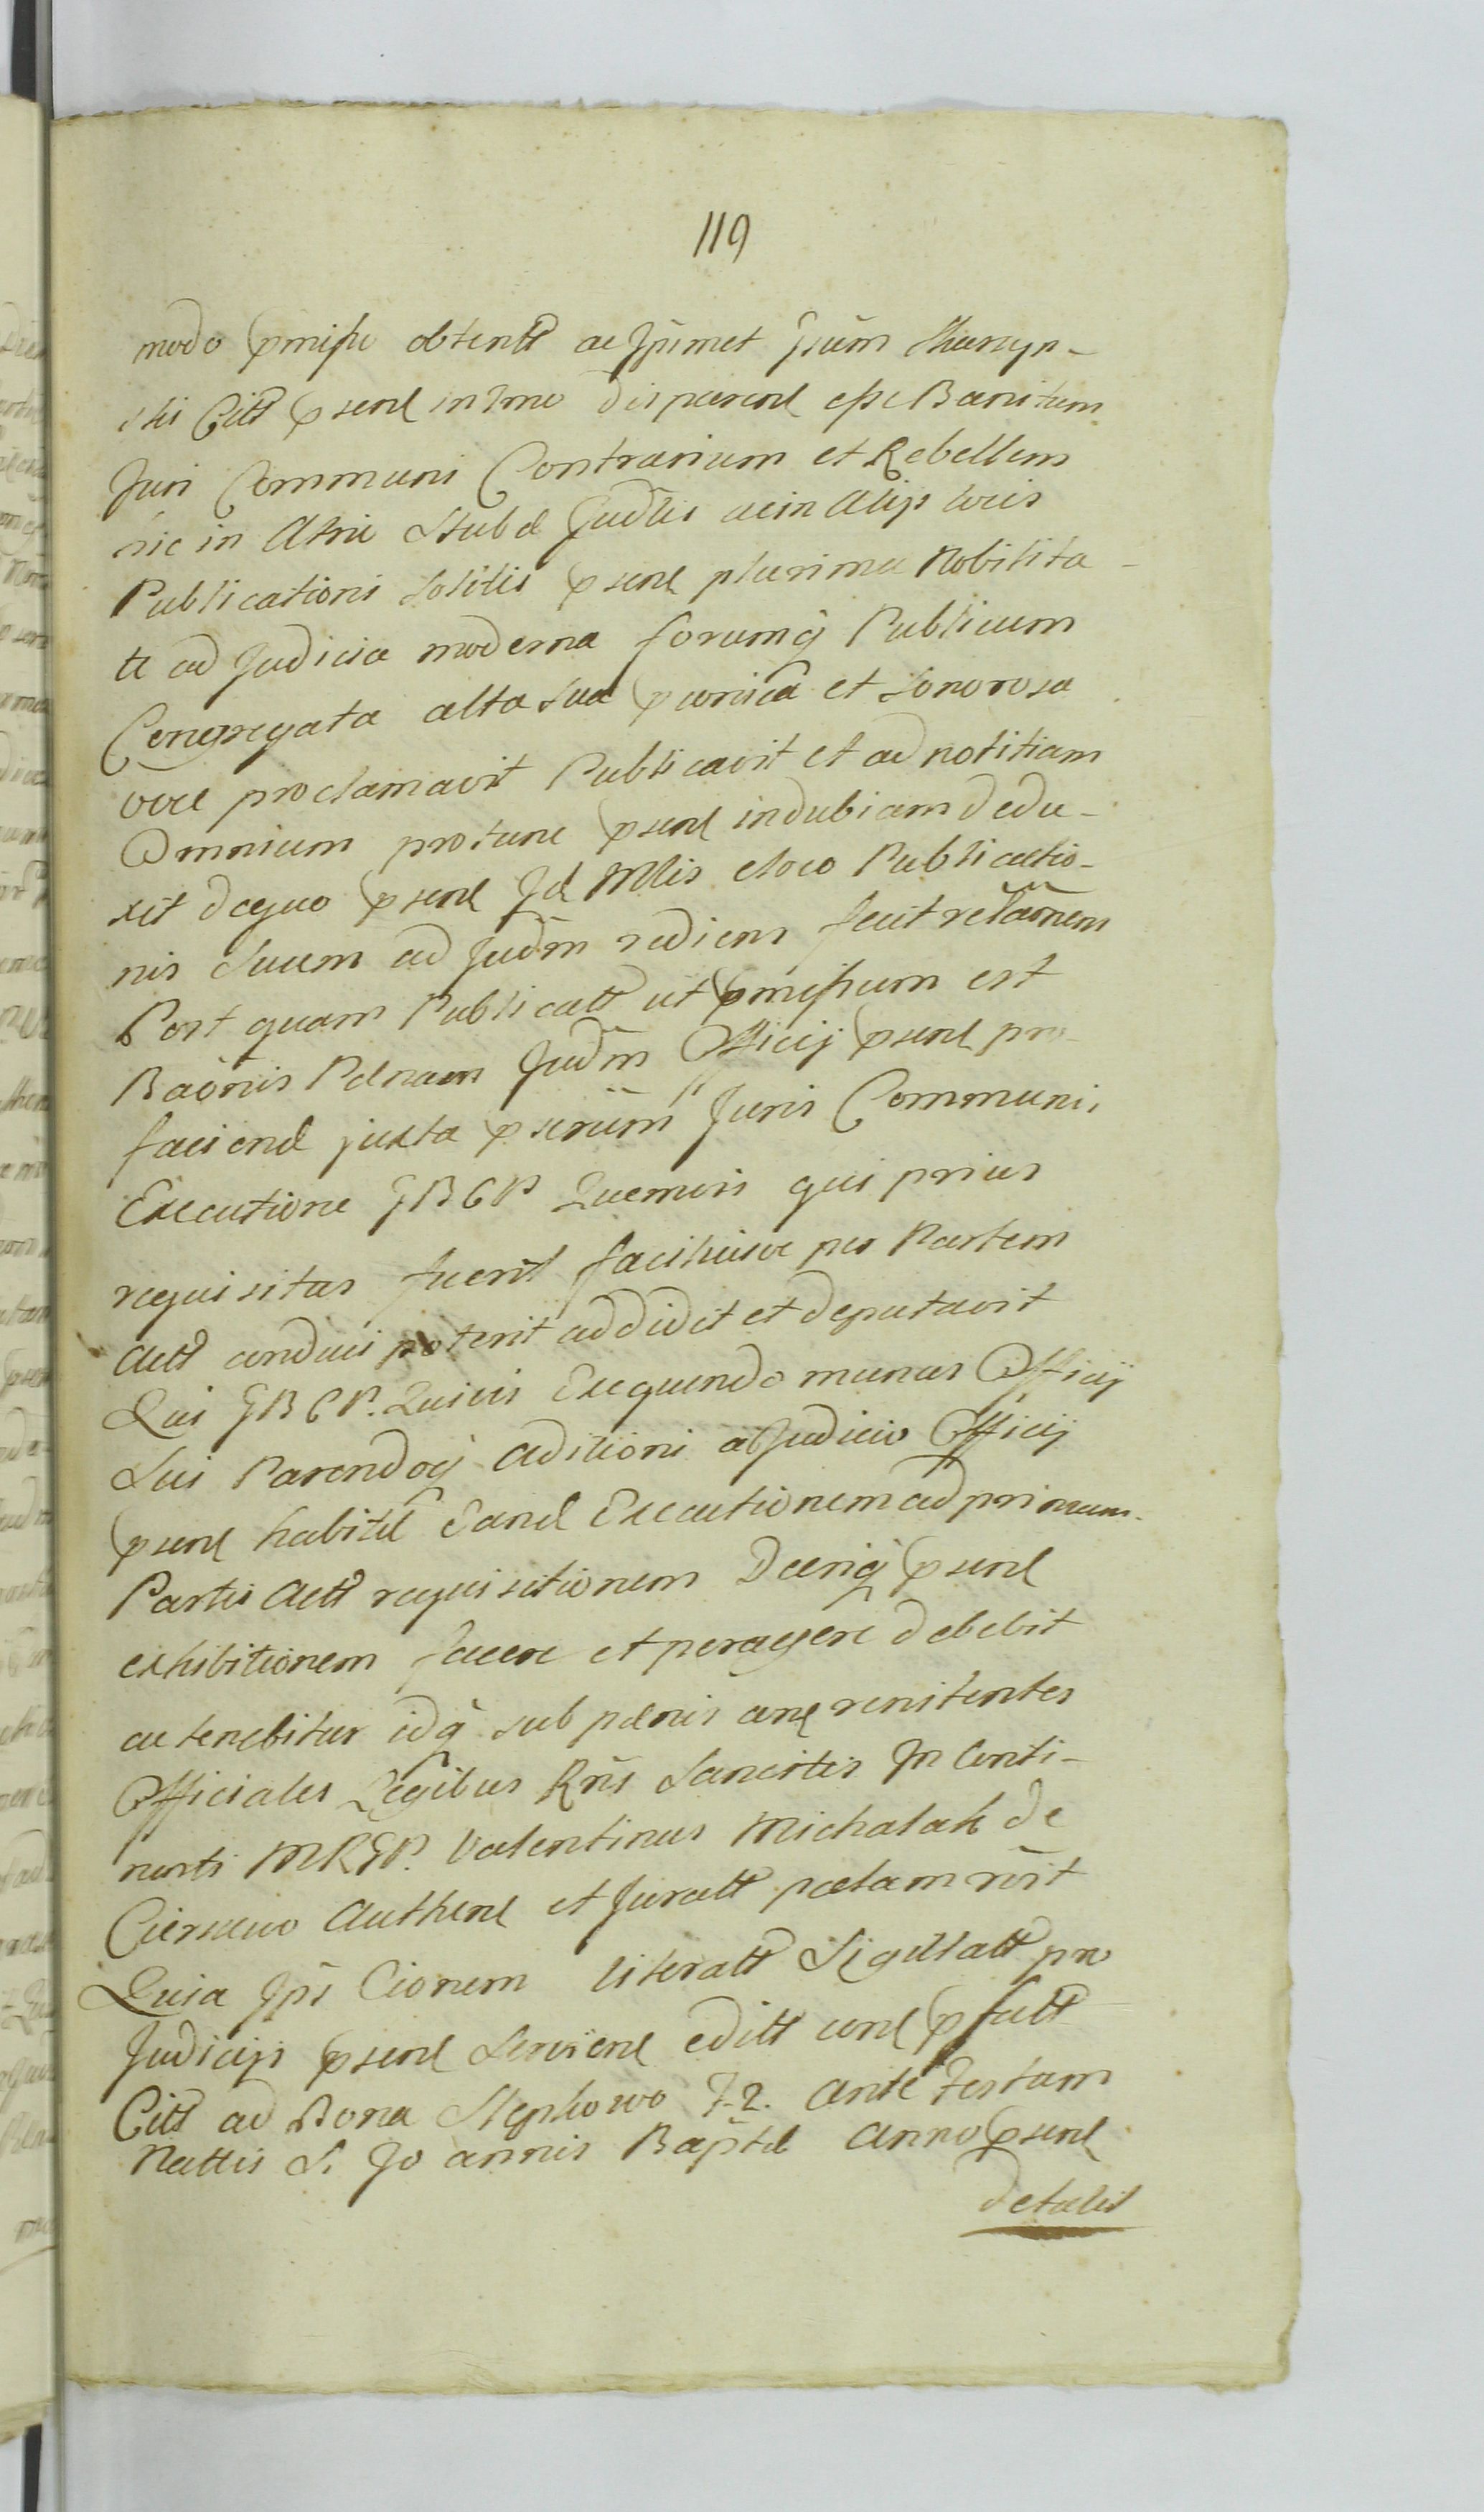 119
modo pmisso obtentt ac Ipsmet Gsum
ski Citt psenl in Tmo disparenl esse Banitum
Juri Communi Contrarium et Rebellem
sic in Atrio Stubæ Judlis ac in Alijs locis
Publicationi Solitis psenl plurima Nobilita-
te ad Judicia moderna forumq̃ Publicum
Congregata alta sua pconica et Sonorosa
voce proclamavit Publicavit et ad notitiam
Omnium protunc psenl indubiam dedu-
xit dequo psenl Id Mlis eloco Publicatio-
nis Suum ad Judm rediens fecit relaõnem
Post quam Publicatt ut pmissum est
Baõnis Pænam Judm Officij psenl pro
faciend juxta pscrium Juris Communis
Executione GBCP Quemvis qui prius
requisitus fuerit faciliusve per Partem
Actt conduci poterit addidit et deputavit
Qui GBCP. Quivis Exequendo munus Officij
Sui Parendoq̃ Aditioni a Judicio Officij
psenl habitæ Eand Executionem ad primam
Partis Actt requisitionem Dceriq̃ psenl
exhibitionem facere et peragere debebit
ac tenebitur idq̃ sub pænis conl renitentes
Officiales Legibus Rñi Sancitis In Conti-
nenti MRGP. Valentinus Michalak de
Cierszewo Authenl et Juratt palam rñit
Quia Ipe Cionem literatt Sigillatt pro
Judicijs psenl Servienl editt conl pfatt
Citt ad Bona Slepkowo F. 2. Ante Festam
Nattis S. Joannis Bapttæ Anno psenl
detulit